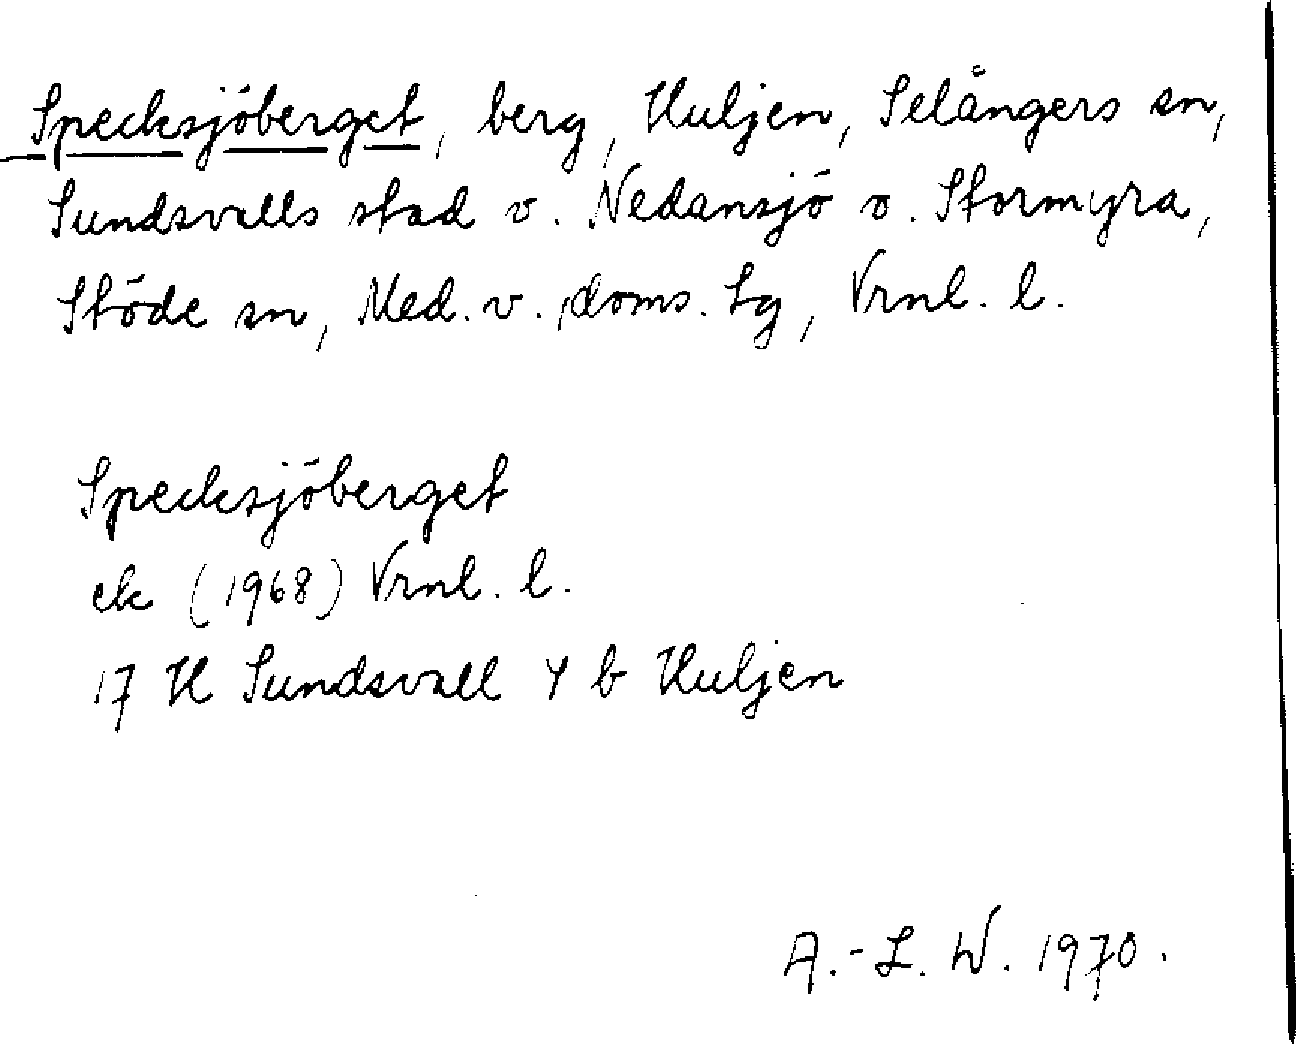 Specksjöberget, berg, Huljen, Selångers sn,
Sundsvalls stad o. Nedansjö o. Stormyra,
Stöde sn, Med. v. doms. tg, Vrnl. l.
Specksjöberget
ek (1968) Vrnl. l.
17 H Sundsvall 4 b Huljen
A.-L. W. 1970.